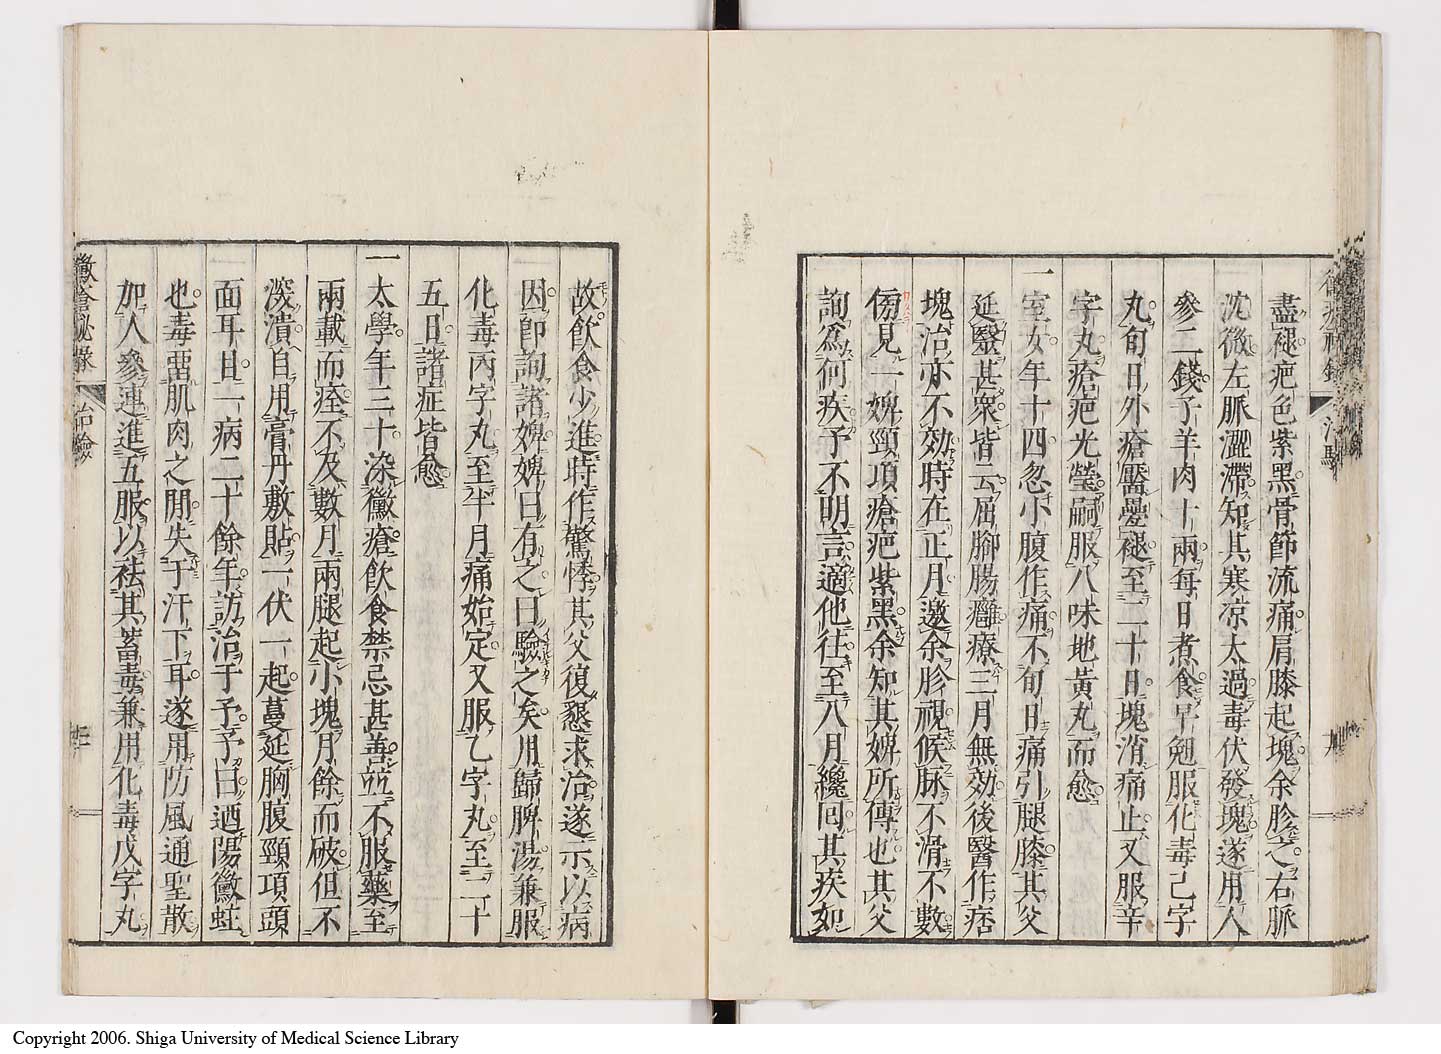 盡褪疤色紫黑骨節流痛肩膝起塊余胗之右脈
沈微左脈澀滯知其寒涼太過毒伏發塊遂用人
參二錢子羊肉十兩每日煮食早勉服化毒己字
丸旬日外瘡靨疊褪至二十日塊消痛止又服辛
字丸瘡疤光瑩嗣服八味地黃丸而愈
一室女年十四忽小腹作痛不旬日痛引腿膝其父
延醫甚眾皆云屈腳腸癰療三月無効後醫作痞
塊治亦不効時在正月邀余胗視候脉不滑不數
傍見一婢頸項瘡疤紫黑余知其婢所傳也其父
詢爲何疾予不明言適他往至八月纔回其疾如
故飲食少進時作驚悸其父復懇求治遂示以病
因即詢諸婢婢曰有之曰驗之矣用歸脾湯兼服
化毒丙字丸至半月痛始定又服乙字丸至二十
五日諸症皆愈
一太學年三十染黴瘡飲食禁忌甚善竝不服藥至
兩載而痊不及數月兩腿起小塊月餘而破但不
深潰自用膏丹敷貼一伏一起蔓延胸腹頸項頭
面耳且一病二十餘年訪治于予予曰迺陽黴蛀
也毒畱肌肉之間失于汗下耳遂用防風通聖散
加人參連進五服以祛其蓄毒兼用化毒戊字丸
黴瘡秘錄 治驗
Copyright 2006. Shiga University of Medical Science Library